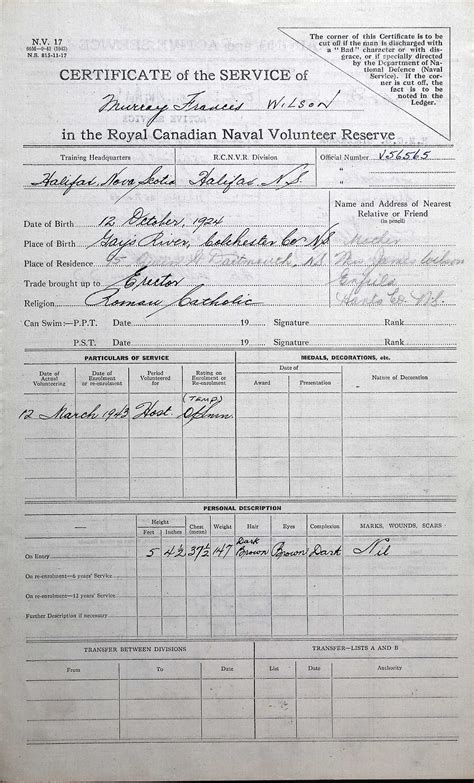 N.V. 17
N.S. 815-11-17
The corner of this Certificate is to be
cut off if the man is discharged with
a "Bad" character or with dis-
grace, or if specially directed
by the Department of Na-
tional Defence (Naval
Service). If the cor-
ner is cut off, the
fact is to be
noted in the
Ledger.
CERTIFICATE of the SERVICE of
Murray Francis WILSON
in the Royal Canadian Naval Volunteer Reserve
Training Headquarters R.C.N.V.R. Division Official Number V56565
Halifax Nova Scotia Halifax N.S.
Name and Address of Nearest
Relative or Friend
(in pencil)
Date of Birth 12 October, 1924
Place of Birth Gays River, Colchester Co N.S. Mother
Place of Residence Dartmouth, N.S. Mrs James Wilson
Trade brought up to Erector Enfield
Religion Roman Catholic Hants Co N.S.
Can Swim:—P.P.T. Date 19 Signature Rank
P.S.T. Date 19 Signature Rank
PARTICULARS OF SERVICE MEDALS, DECORATIONS, etc.
Date of Actual Volunteering Date of Enrolment or re-enrolment Period Volunteered for Rating on Enrolment or Re-enrolment Date of Award Presentation Nature of Decoration
(Temp)
12 March 1943 Host.
PERSONAL DESCRIPTION
Height Feet Inches Chest (mean) Weight Hair Eyes Complexion MARKS, WOUNDS, SCARS
On Entry 5 4½ 37½ 147 Dark Brown Brown Dark Nil
On re-enrolment—6 years' Service
On re-enrolment—12 years' Service
Further Description if necessary
TRANSFER BETWEEN DIVISIONS TRANSFER—LISTS A AND B
From To Date List Date Authority